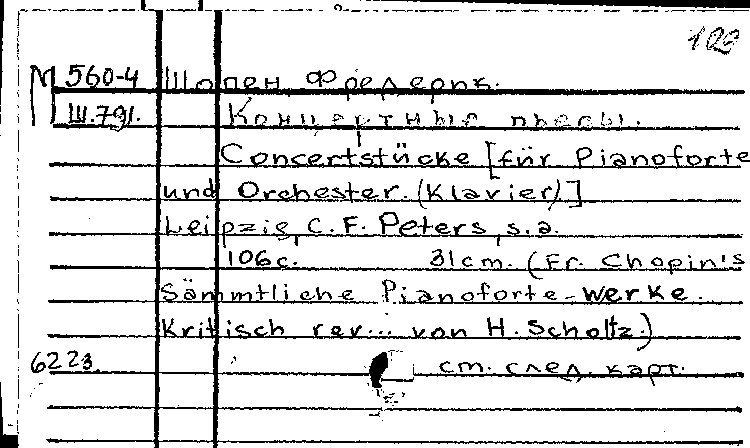 102
М 560-4 Шопен, Фредерик.
Ш.791. Концертные пьесы.
Concertstücke [für Pianoforte
und Orchester. (Klavier)]
Leipzig, C. F. Peters, s.a.
106 с. 31 cm. (Fr. Chopin's
Sämmtliche Pianoforte-Werke.
Kritisch rev... von H. Scholtz.)
6223. см. след. карт.